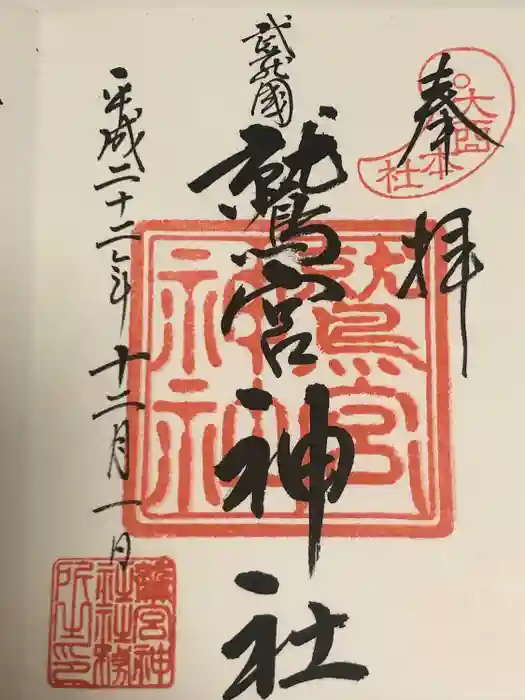 奉拝
大酉
本社
武蔵國
鷲宮神社
鷲宮
神社
平成二十二年十二月一日
鷲宮神
社社務
所之印